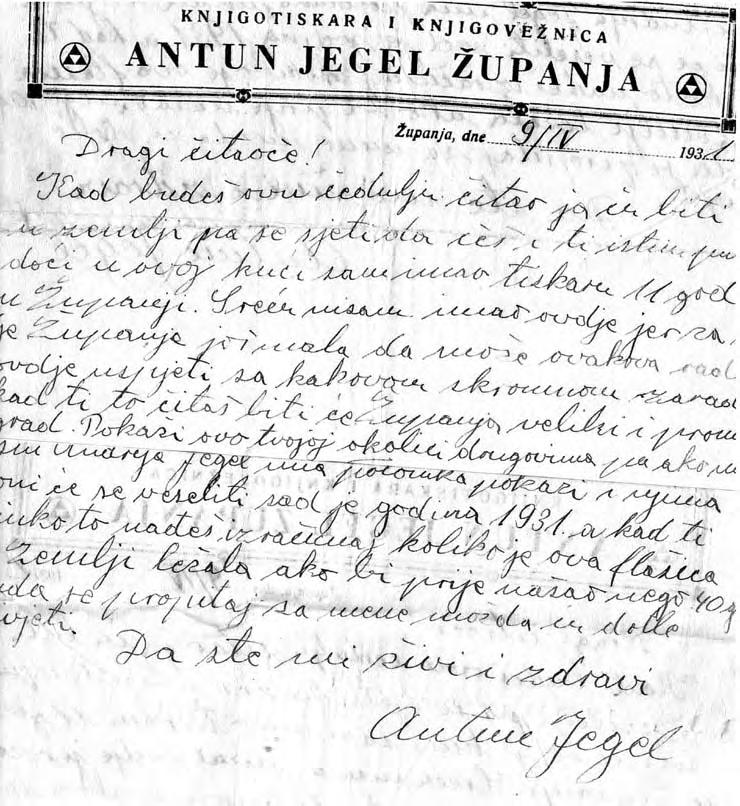 KNJIGOTISKARA I KNJIGOVEŽNICA
ANTUN JEGEL ŽUPANJA
Županja, dne 9/IV 1931.
Dragi čitaoče!
Kad budeš ovu čedulju čitao ja ću biti
u zemlji pa se sjeti da ćeš i ti istim pu
doći u ovoj kući sam imao tiskaru 11 god
u Županji. Sreću nisam imao ovdje jer za
je Županja još mala da može ovakova rad
ovdje uspjeti sa kakovom skromnom zarad
kad ti to čitaš biti će Županja veliki i prom
grad. Pokaži ovo tvojoj okolici drugovima pa ako m
sin Andrija Jegel ima potomka pokaži i njima
oni će se veseliti sad je godina 1931. a kad ti
unko to nađeš izračunaj koliko je ova flašica
zemlji ležala ako bi prije našao nego 40 g
da se propitaj za mene možda ću dotle
vjeti.
Da ste mi živi i zdravi
Antun Jegel